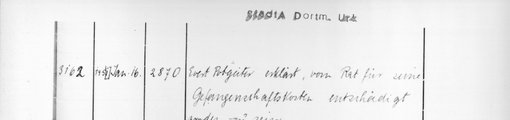 Dortm. Urk
3162 Jan. 16. 2870 Evert Potgieter erklärt, vom Rat für seine
Gefangenschaftskosten entschädigt